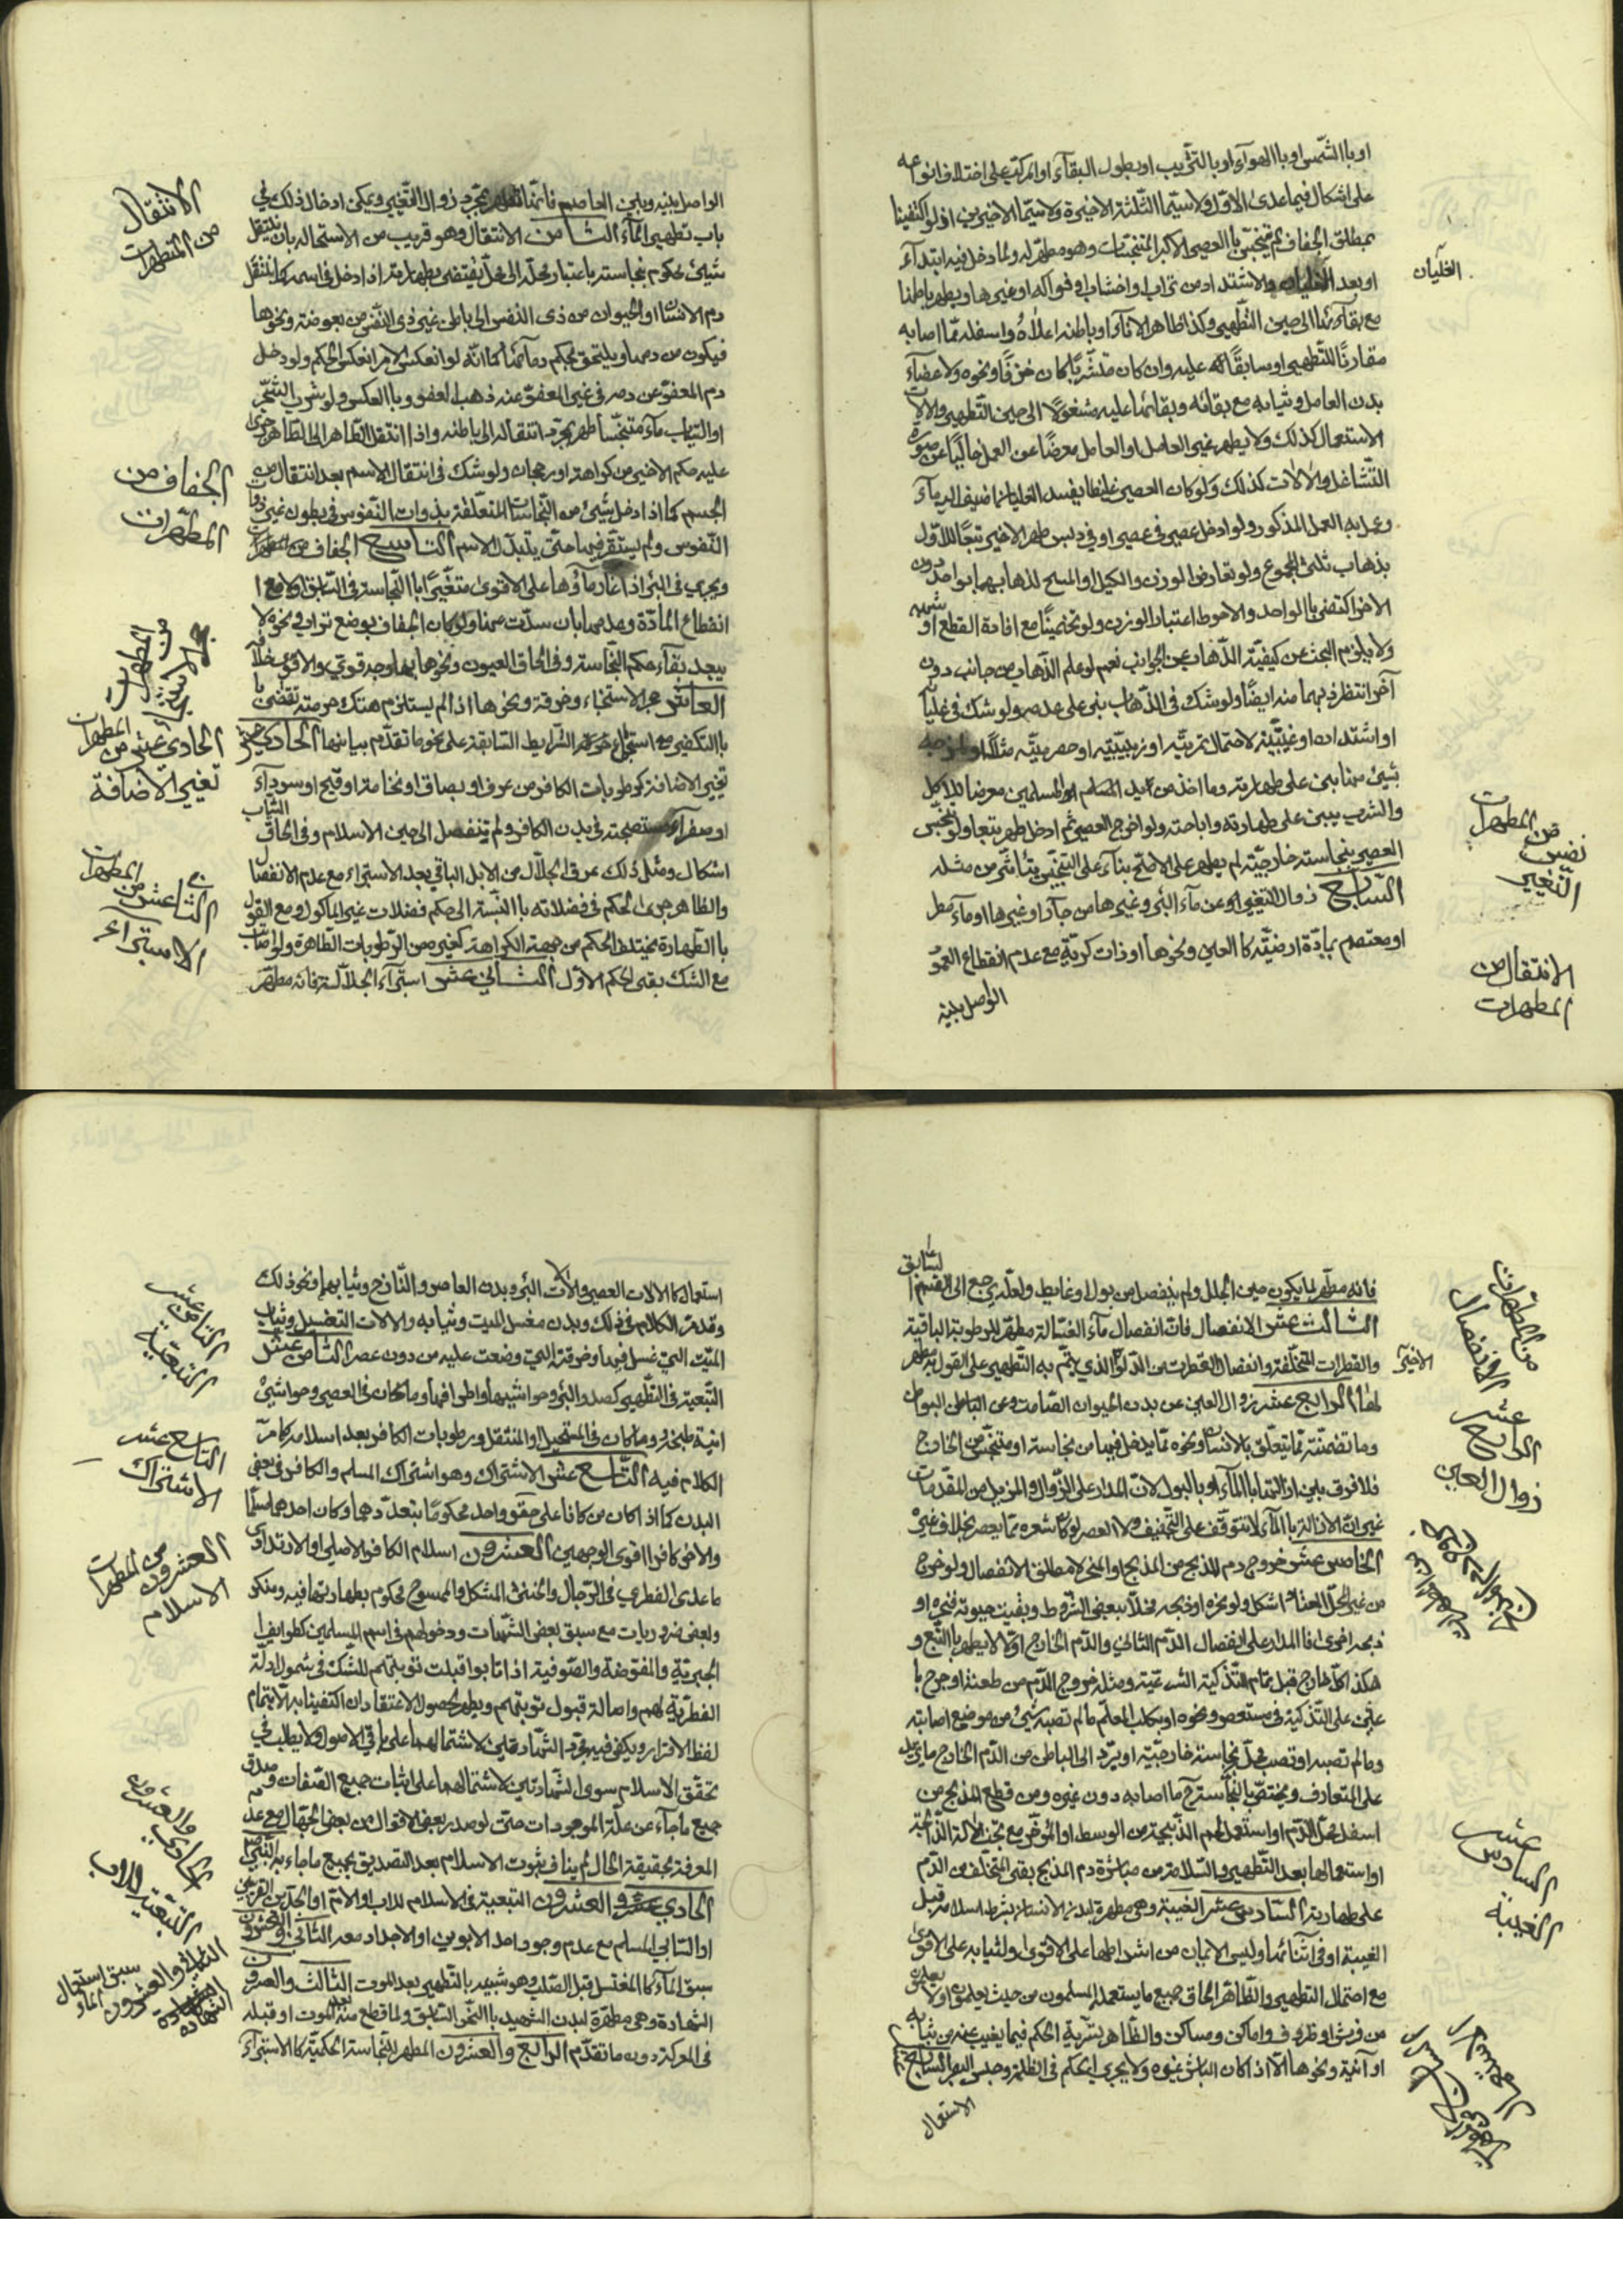 او بالشّمس او بالهوآء او بالتّخريب او بطول البقآء او المركّب على اختلاف انواعه
على اشكال فيما عدى الاوّل ولا سيّما الثّلثة الاخيرة ولا سيّما الاخيرين اذ لو اكتفينا
بمطلق الجفاف لم يتنجّس باالعصير الاكبر المتنجّسات وهو مطهّر له ولما دخل فيه ابتدآء
او بعد الغليان والاشتداد من تراب واخشاب او فواكه او غيرها ويطهر باطنا
الغليان
مع بقآئها الى حين التّطهير وكذا ظاهر الانآء او باطنه اعلاه واسفله ممّا اصابه
مقارنًا للتّطهير او سابقًا عليه وان كان متشرّبًا كما كان خزفًا ونحوه ولا اعضآء
بدن العامل وثيابه مع بقائه وبقائها عليه مشغولًا الى حين التّطهير والالات
الاستعمال كذلك ولا يطهر غير العامل او العامل معرضًا عن العمل خاليًا عن صورة
التّشاغل والالات كذلك ولو كان العصير غليظا يفسد الغليان اضيف اليه مآء
وعمل به العمل المذكور ولو ادخل عصير في عصير او في دبس طهر الاخير تبعًا للاوّل
بذهاب ثلثي المجموع ولو تعارض الوزن والكيل او المسح لذهابهما بواحد دون
الاخر اكتفى باالواحد والاحوط اعتبار الوزن ولو تخمينًا مع افادة القطع او شبهه
ولا يلزم البحث عن كيفيّة الذّهاب عن الجوانب نعم لو علم الذّهاب من جانب دون
آخر انتظر ذهابهما منه ايضًا ولو شك في الذّهاب بنى على عدمه ولو شك في غليانه
او اشتداده او عنبيّته لاحتمال تمريّته او زبيبيّته او حصرميّته مثلًا او مزجه
بشيئ منها بنى على طهارته وما اخذ من يد المسلم او المسلمين معرضا للاكل
والشّرب يبنى على طهارته واباحته ولو اخرج العصير ثم ادخل طهر بتعا ولو تنجّس
من المطهرات نصير التغير
العصير بنجاسة خارجيّة لم يطهر على الاصّح بنآء على التنجّس يتأثّر من مثله
السّابع زوال التغيّر لو عن مآء البئر وغيرها من جار او غيرها او مآء مطر
او معتصم بمادّة ارضيّة كا العيون ونحوها او ذات كريّة مع عدم انقطاع العمود
الانتقال من المطهرات
الواصل بينه
الواصل بينه وبين العاصم فانّها تطهر بمجرّد زوال التّغيّر ويمكن ادخال ذلك في
الانتقال من المطهرات
باب تطهير المآء الثّامن الانتقال وهو قريب من الاستحاله بان ينتقل
شيئ محكوم بنجاسته باعتبار محلّه الى محلّ يقتضي بطهارته اذا دخل في اسمه كما ينتقل
دم الانسان او الحيوان من ذى النّفس الى باطن غير ذى النّفس من بعوضة ونحوها
فيكون من دمها ويلتحق بحكم دمآئها كما انّه لو انعكس الامر انعكس الحكم ولو دخل
دم المعفوّ عن دمه في غير المعفوّ عنه ذهب العفو وباالعكس ولو شرب الشّجر
او النّبات مآء متنجّسًا طهر بمجرّد انتقاله الى باطنه واذا انتقل الطّاهر الى الطّاهر جرى
عليه حكم الاخير من كراهة او رجحان ولو شك في انتقال الاسم بعد انتقال من
الجفاف من المطهّرات
الجسم كما اذا دخل شيئ من النّجاسات المتعلّقة بذوات النّفوس في بطون غير ذوات
النّفوس ولم يستقر فيها حتى يتبدّل الاسم التّاسع الجفاف من المطهرات
ويجري في البئر اذا غار مآؤها على الاقوى متغيّرًا باالنّجاسة في السّابق اولا مع
انقطاع المآدّة وعدمها بان سدّت عنها ولو كان الجفاف بوضع تراب ونحوه لا
يبعد بقآء حكم النّجاسة وفي الحاق العيون ونحوها بها وجه قوي والاقوى خلافه
العاشر حجر الاستنجاء وخرقة ونحوها اذا لم يستلزم هتك حرمته تقضى
حجر الاستنجاء من المطهرات
باالتكفير مع استجماع الشّرايط السّابقة على نحو ما تقدّم بيانها الحادي عشر
الحادي عشر من المطهرات تغير الاضافة
تغيير الاضافة كرطوبات الكافر من عرق او بصاق او نخامة او قيح او سودآء
او صفرآء مستصحبة في بدن الكافر ولم تنفصل الى حين الاسلام وفي الحاق الثياب
اشكال ومثل ذلك عرق الجلّال من الابل الباقي بعد الاستبراء مع عدم الانفصال
الثاني عشر من المطهرات الاستبرآء
والظاهر جرى الحكم في فضلاته باالنّسبة الى حكم فضلات غير المأكول ومع القول
باالطّهارة يختلف الحكم من جهة الكراهة كغيره من الرّطوبات الطّاهرة ولو اصاب
مع الشك بقى الحكم الاوّل الثّاني عشر استبرآء الجلّالة فانه مطهّر
فانه مطهّر لما يكون حين الجلل ولم ينفصل من بول او غايط ولعلّه يرجع الى القسم السّابق
من المطهرات الانفصال
الثّالث عشر الانفصال فانّ انفصال مآء الغسالة مطهّر للرّطوبة الباقية
والقطرات المتخلّفة وانفصال القطرات من الدّلو الذي يتمّ به التّطهير على القول به مطهر
الاخير
لها الرابع عشر زوال العين عن بدن الحيوان الصّامت وعن الباطن البواطن
الرابع عشر زوال العين
وما تضمنته ممّا يتعلّق بالانسان ونحوه ممّا يدخل فيها من نجاسة او متنجّس من الخارج
فلا فرق بين ازالتها باالمآء او بالبول لانّ المدار على الزّوال والمزيل من المقدّمات
غير انّ الازالة باالمآء لا تتوقّف على التّجفيف ولا العصر لو كان شعره ممّا يعصر بخلاف غيره
الخامس عشر خروج دم المذبح من المذبح او المنحر لا مطلق الانفصال ولو خرج
من غير المحلّ المعتاد اشكل ولو نحره او ذبحه مخلًا ببعض الشّروط وبقيت حيوته فنحره او
ذبحه اخرى فا المدار على انفصال الدّم الثاني والدّم الخارج اوّلا لا يطهر باالتّبع و
هكذا كلّ خارج قبل تمام التّذكية الشّرعيّة ومثله خروج الدّم من طعنة او جرح با
علين على التّذكية في مستعص ونحوه او بكلب المعلّم ما لم تصبه شيئ من موضع اصابته
وما لم تصبه او تصب محلّ نجاسة خارجيّة او يرد الى الباطن من الدّم الخارج ما يزيد
على المتعارف ويختصّ بالنجاسة ما اصابه دون غيره ومن قطع المذبح من
السادس عشر الغيبة
او استعمالها بعد التّطهير والسّلامة من مباشرة دم المذبح بقى المتخلّف من الدّم
على طهارته السّادس عشر الغيبة وهي مطهرة لبدن الانسان بشرط اسلامه قبل
الغيبة او في اثنائها وليس الايمان من اشراطها على الاقوى ولثيابه على الاقوى
مع احتمال التطهير والظّاهر الحاق جميع ما يستعمله المسلمون من حيث يعلمون او لا
من فرش او ظروف واماكن ومساكن والظّاهر تسرية الحكم فيما يغيب عنه من ثيابه
او آنية ونحوها الّا اذا كان الباشق غيره ولا يجري الحكم في الظلمة وحبس البصر السّابع عشر
الاستعمال
استعمال كا الالات العصير والات البئر وبدن العاصر والنّازح وثيابهما ونحو ذلك
وقد مرّ الكلام في ذلك وبدن مغسل الميت وثيابه والالات التغسيل وثياب
الثامن عشر التبعية
الميّت التي غسل فيها وخرقته التي وضعت عليه من دون عصر الثّامن عشر
التّبعية في التّطهير كصدر البئر وحواشيها واطرافها وما كان في العصير وحواشيْ
انية طبخه وما كان في المستحيل او المنتقل ورطوبات الكافر بعد اسلامه كما مرّ
التاسع عشر الاشتراك
الكلام فيه التّاسع عشر الاشتراك وهو اشتراك المسلم والكافر في بعض
البدن كما اذا كان من كانا على حقو واحد محكومًا بتعدّدهما وكان احدهما مسلمًا
والاخر كافرا اقوى الوجهين العشرون اسلام الكافر الاصلي او الارتدادي
العشرون من المطهرات الاسلام
ما عدى الفطري في الرّجال والخنثى المشكل والممسوح محكوم بطهارتها فيه ومنكر
وبعض ضروريات مع سبق بعض الشّبهات ودخولهم في اسم المسلمين كطوايف
الجبريّة والمفوّضة والصّوفية اذا تابوا قبلت توبتهم للشّك في شمول ادلّة
الفطريّة لهم واصالة قبول توبتهم ويطهر بحصول الاعتقاد ان اكتفينا به لا بتمام
لفظ الاقرار ويكفي فيه مجرّد الشّهادتين لاشتمالهما على باقي الاصول ولا يطلب في
تحقّق الاسلام سوى الشّهادتين لاشتمالهما على اثبات جميع الصّفات وصدق
جميع ما جآء عن علّة الموجودات حتّى لو صدر بعض الاقوال من بعض الجهّال مع عدم
المعرفة بحقيقة الحال لم يناف ثبوت الاسلام بعد التصديق بجميع ما جاء به النّبي
الحادي والعشرون التبعيّة للاب
الحادي عشر والعشرون التبعية في الاسلام للاب او الامّ او الجدّين القريبين
او السّابي المسلم مع عدم وجود احد الابوين او الاجداد معه الثّاني والعشرون
الثاني والعشرون سبق استعمال الماء
سبق المآء كا المغتسل قبل القتل وهو شبيه بالتّطهير بعد الموت الثّالث والعشرون
الشهادة
الشّهادة وهي مطهّرة لبدن الشّهيد باالنّحو السّابق ولما قطع منه بعد الموت او قبله
في المعركة دون ما تقدّم الرّابع والعشرون المطهر للنّجاسة الحكميّة كا الاستبرآء